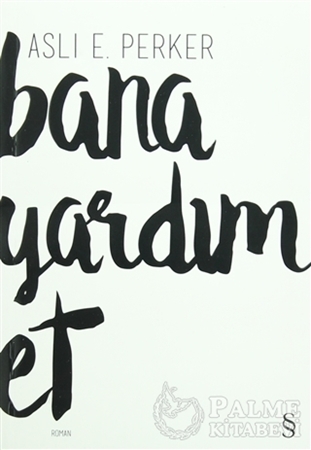 ASLI E. PERKER
bana
yardım
et
ROMAN
PALME
KİTABEVİ